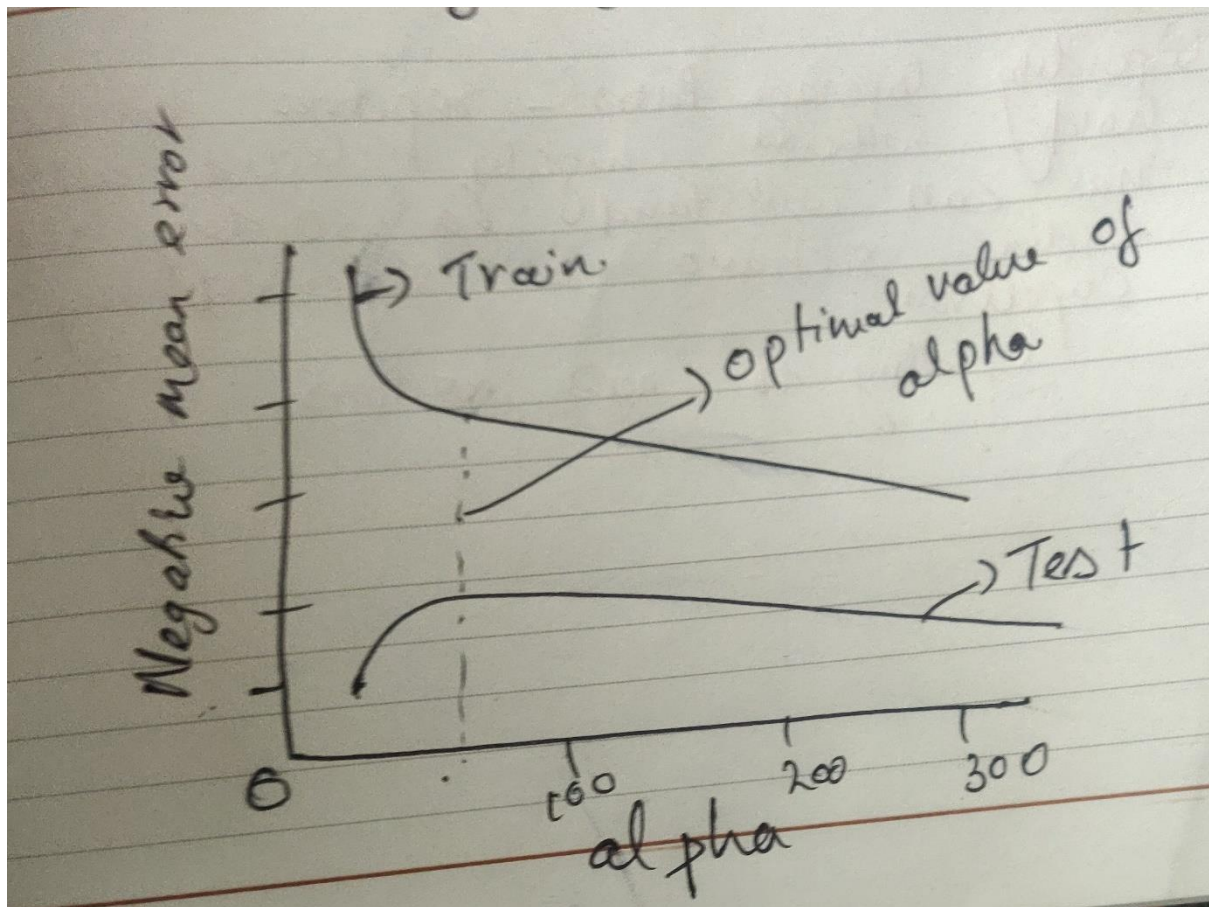 Negative mean error
Train
optimal value of
alpha
Test
0
100
200
300
alpha